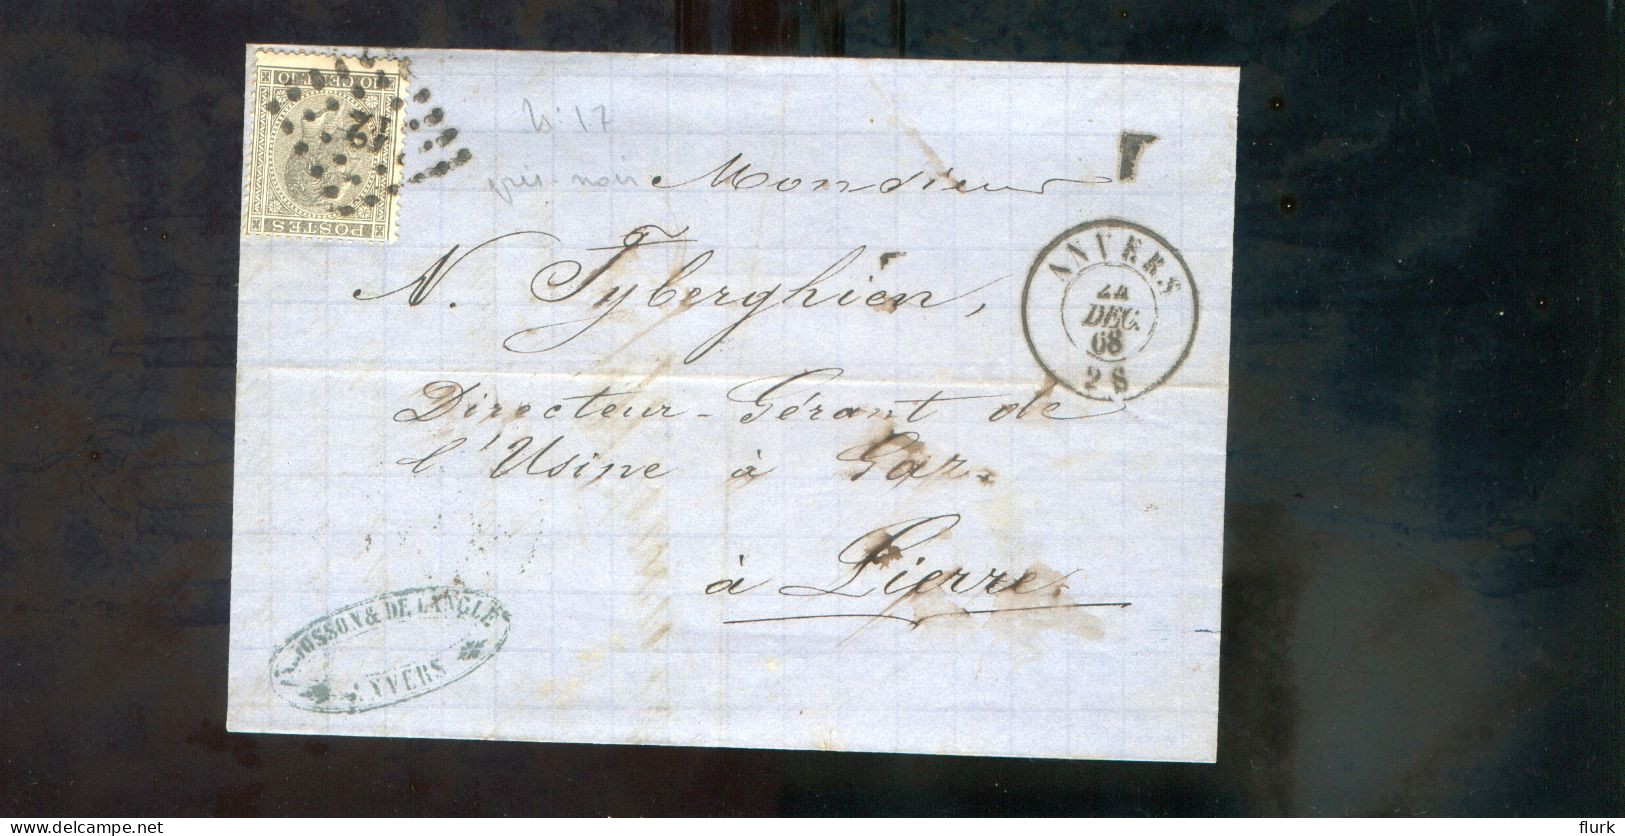 10 CENT. 10
12
POSTES
N: 17
gris-noir
Monsieur
N. Tyberghien,
Directeur-Gérant de
l'Usine à Gaz.
à Lierre.
ANVERS
24
DEC.
68
JOSSON & DE LANGLE
ANVERS
delcampe.net
flurk